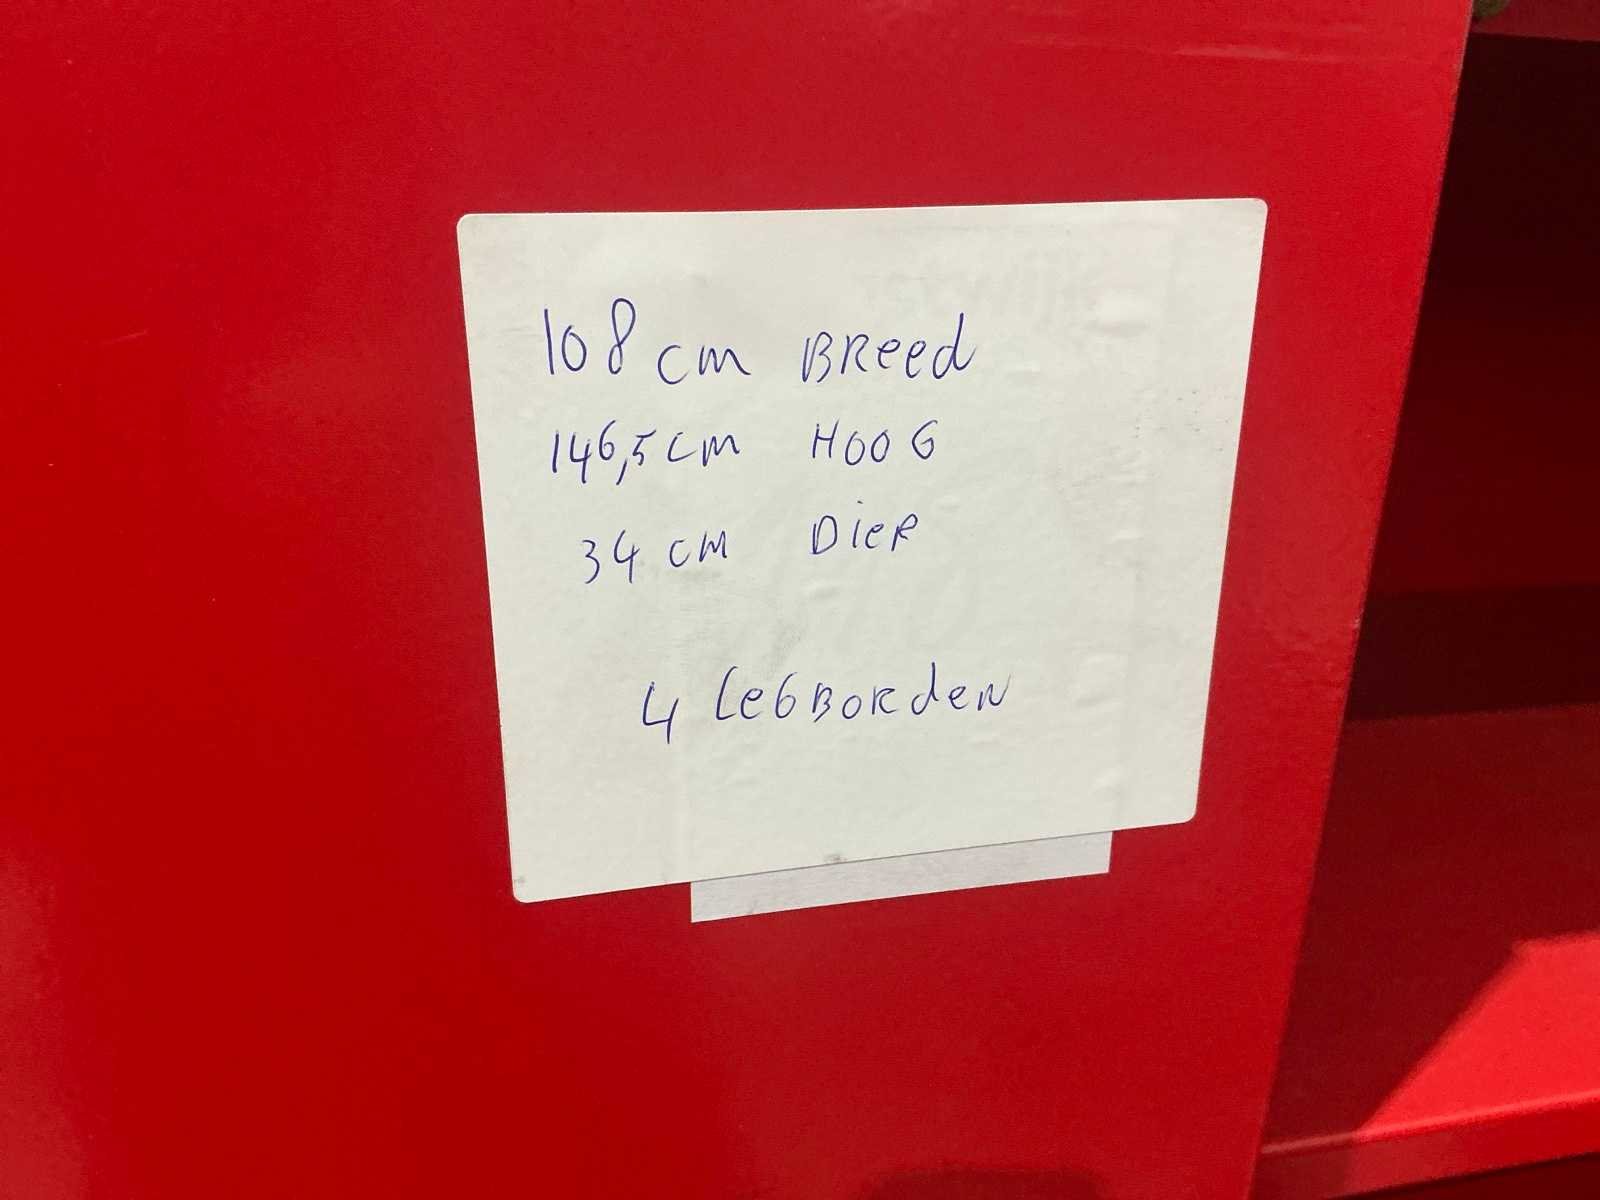 108 cm BReed
146,5 cm HOOG
34 cm DieP
4 LeGBORdeN